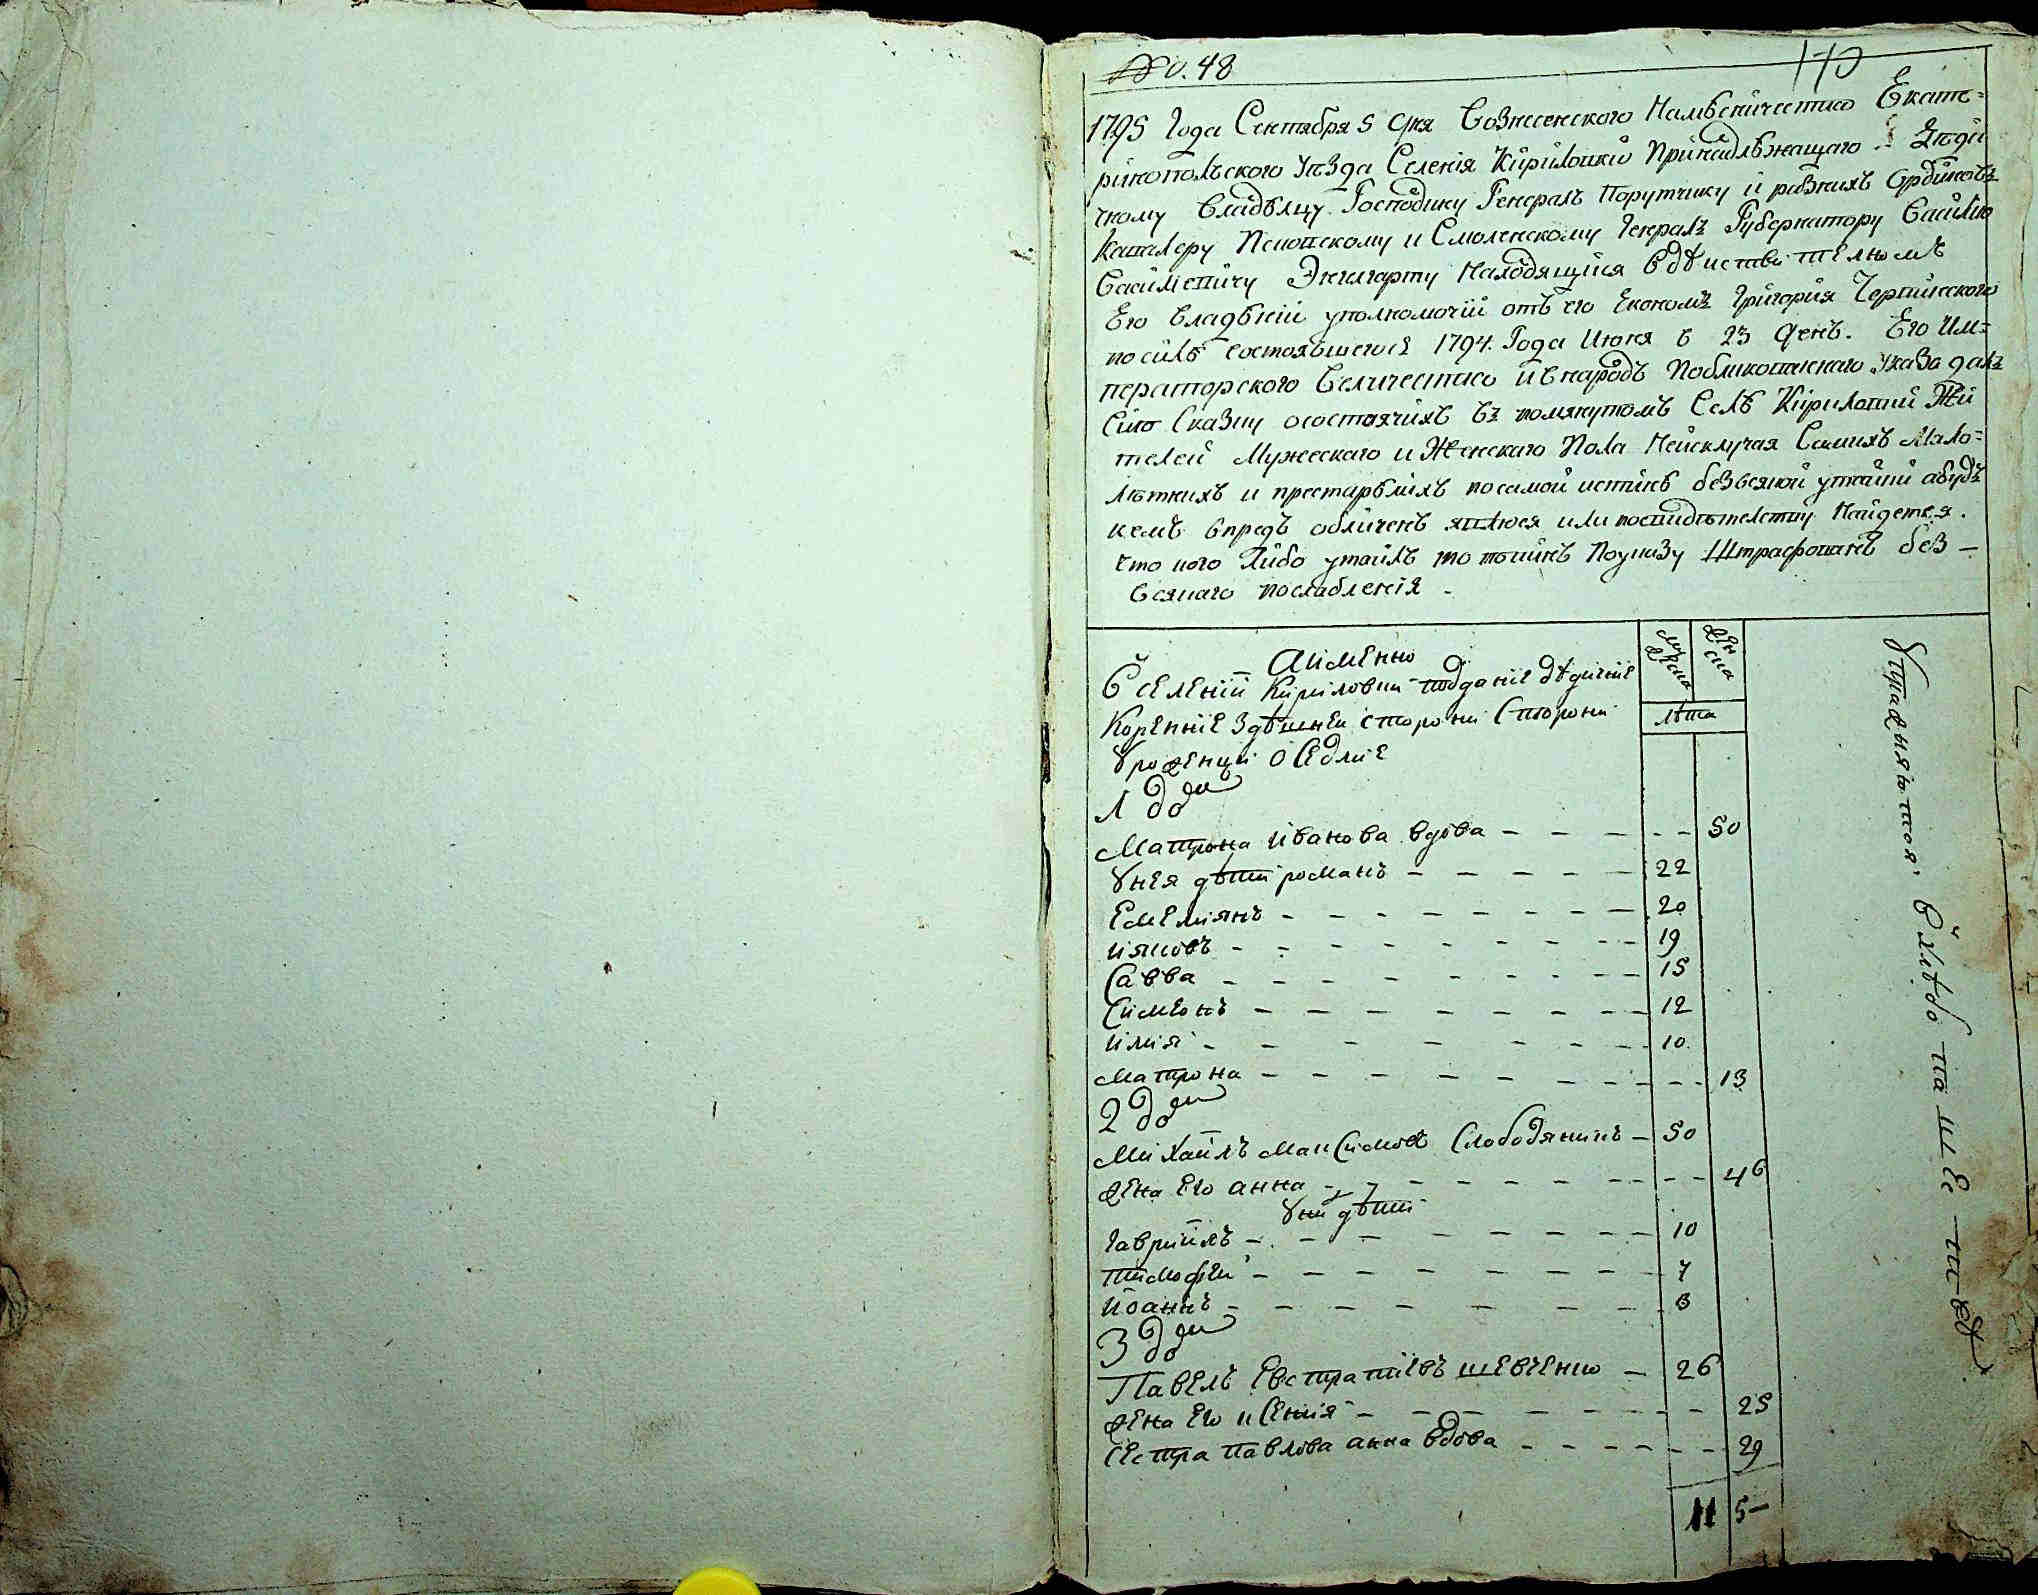 No. 48
170
1795 Года Сентября 5 дня Вознесенского Намѣсничества Екате=
рінополъского уѣзда Селенія Кірілошки Принадлѣжащаго Дѣди
чному владѣлцу Господину Генералъ Порутчику и разнихъ Ордіновъ
Кавалеру Псковскому и Смоленскому Генералъ Губернатору Василию
Василіевичу Энгилгарту Находящіися в дѣиствителномъ
Его владѣніи уполномочіи отъ его Економъ Григорія Чернявского
по сілѣ состоявшегося 1794. Года Июня в 23 день. Его Им=
ператорского Величества и в народъ Побликованнаго Указа далъ
Сию Сказку о состоячихъ въ помянутомъ Селѣ Кіриловки Жи
телей Мужескаго и Женскаго Пола Неисключая Самихъ Мало=
лѣтнихъ и престарѣлихъ по самой истинѣ без всякой утайки а буде
кемъ впредь обличенъ явлюся или по свидѣтелству Найдется.
что кого Либо утаилъ то повиненъ По указу Штрафованъ без –
всякаго послабленія –
А именно
В селеніи Кириловки подданіе дѣдичніе
Коренніе здѣшнеи сторони Сторони
Уроженци Оседліе
мужеска
женска
лѣта
1 двор
Матрона Иванова вдова – – – – – 50
У нея дѣти романъ – – – – – 22
Емелиянъ – – – – – – – – 20
Ияковъ – – – – – – – – – 19
Савва – – – – – – – – – 15
Симеонъ – – – – – – – – 12
Илия – – – – – – – – 10
Матрона – – – – – – – – – – 13
2 двор
Михаилъ Максимовъ Слободяникъ – 50
жена Его анна – – – – – – – – – – 46
У нихъ дѣти
Гавриилъ – – – – – – – – – 10
Тимофеи – – – – – – – – – 7
Иоаннъ – – – – – – – – 3
3 двор
Павелъ Евстратиевъ шевченко – 26
жена Его иСения – – – – – – – – 25
Сестра павлова анна вдова – – – – – – 29
11 5–
Упражняются. в хлѣбопашестве